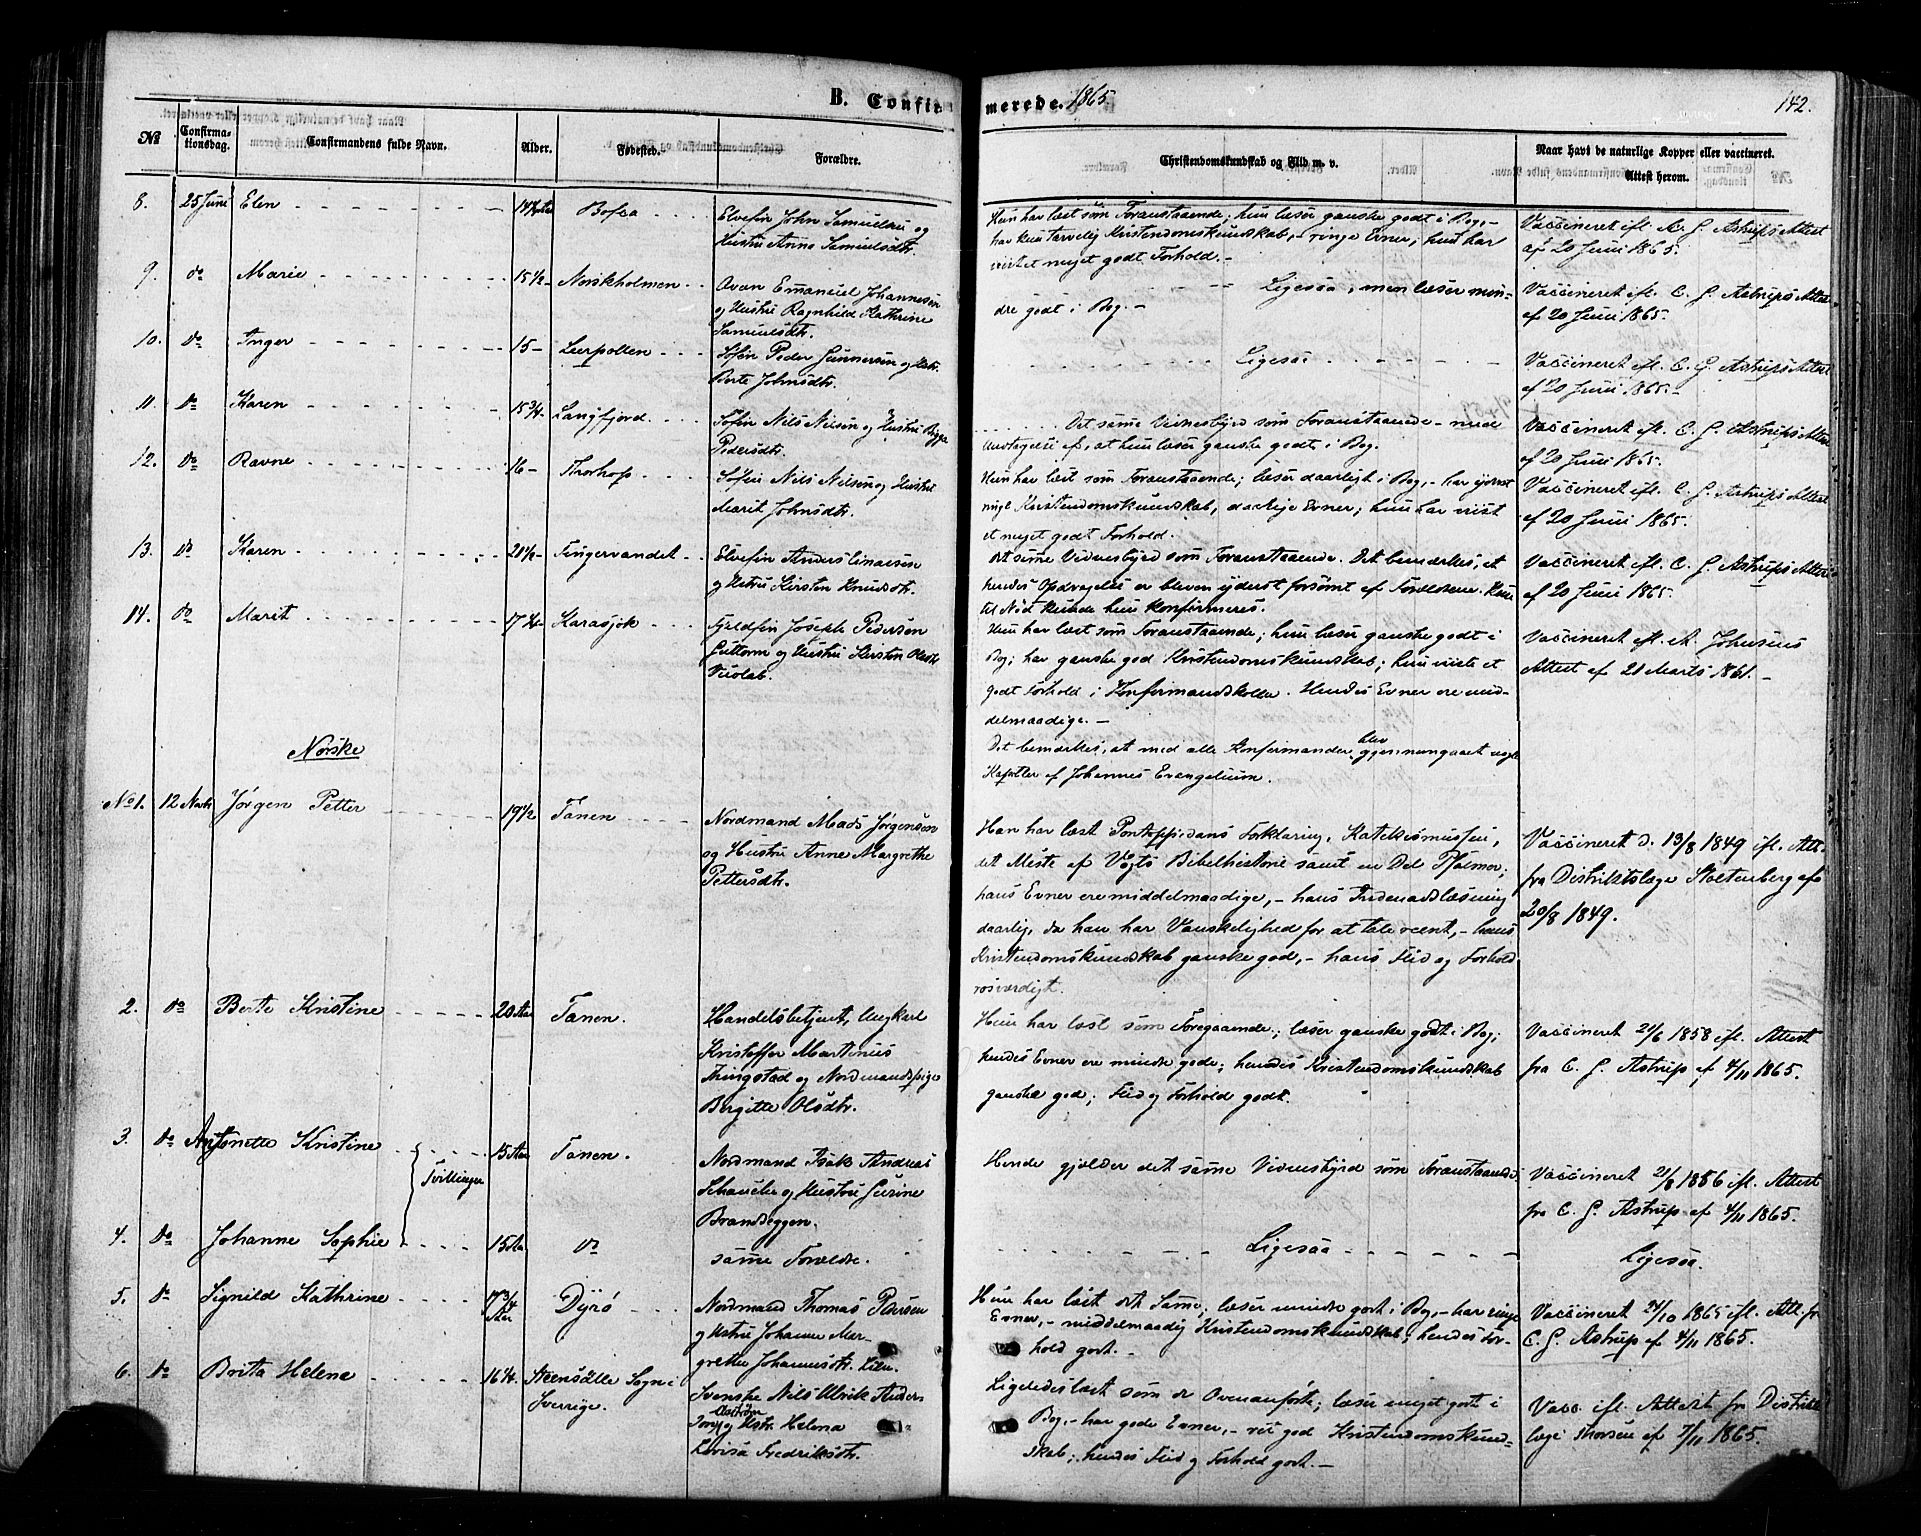 B. Confirmerede. 1865.
142.
No
Confirmationsdag.
Confirmandens fulde Navn.
Alder.
Fødested.
Forældre.
Christendomskundskab og Flid m. v.
Naar havt de naturlige Kopper eller vaccineret.
Attest herom.
8. 25 Juni Elen
Elvefin John Samuelsen og
Hustru Anna Samuelsdtr.
Hun har læst som Foranstaaende; hun læser ganske godt i Bog,-
har kun tarvelig Kristendomskundskab, - ringe Evner; hun har
vist et meget godt Forhold. -
Vaccineret efl. C. G. Astrups Attest
af 20 Juni 1865.
9. do Marie 15 1/2 - Norskholmen
Emanuel Johannesen
og Hustru Ragnhild Kathrine
Samuelsdtr.
Ligesaa, men læser min-
dre godt i Bog. -
Vaccineret efl. C. G. Astrups Attest
af 20 Juni 1865.
10. do Inger 15 - Leerpollen
Søfin Peder Gunnersen og Hstr.
Berte Johnsdtr.
Ligesaa
Vaccineret efl. C. G. Astrups Attest
af 20 Juni 1865.
11. do Karen 15 3/4 - Langfjord
Søfin Nils Nilsen og Hustru
Pedersdtr.
Det same Vidnesbyrd som Foranstaaende - med
Undtagelse af, at hun læser ganske godt i Bog.
Vaccineret efl. C. G. Astrups Attest
af 20 Juni 1865.
12. do Ravne 16 - Thorhop
Søfin Nils Nilsen og Hustru
Marit Johnsdtr.
Hun har læst som Foranstaaende; læser daarligt i Bog, - har yderst
ringe Kristendomskundskab, daarlige Evner; hun har vist
et meget godt Forhold.
Vaccineret efl. C. G. Astrups Attest
af 20 Juni 1865.
13. do Karen 20 1/2 - Fingervandet
Elvefin Anders Einarsen
og Hstru Kirsten Knudsdtr.
det same Vidnesbyrd som Foranstaaende. Det bemærkes, at
hendes Opdragelse er bleven yderst forsømt af Forældrene. Kun
til Nød kunde hun konfirmeres.
Vaccineret efl. C. G. Astrups Attest
af 20 Juni 1865.
14. do Marit Karasjok
Fjeldfin Joseph Pedersen
Guttorm og Hustru Kirsten Olsdtr.
Hun har læst som Foranstaaende; hun læser ganske godt i
Bog; har ganske god Kristendomskundskab; hun viste et
godt Forhold i Konfirmandskolen. Hendes Evner ere mid-
delmaadige. -
Vaccineret efl. A. Johnsens
Attest af 21 Marts 1861. -
Norske
Det bemærkes, at med alle Konfirmander blev gjennemgaaet nogle
Kapitler af Johannes Evangelium.
No 1. 12 Novbr Jørgen Petter 19 1/2 Tanen
Nordmand Mads Jørgensen
og Hustru Anne Margrethe
Pettersdtr.
Han har læst Pontoppidans Forklaring, Katekismusen,
det Meste af Vogts Bibelhistorie samt en Del Psalmer;
hans Evner ere middelmaadige, - hans Indenadlæsning
daarlig, da han har Vanskelighed for at tale reent, - hans
Kristendomskundskab ganske god, - hans Flid og Forhold
rosværdigt.
Vaccineret d. 13/8 1849 efl. Att.
fra Distriktslæge Stoltenberg af
20/8 1849.
2. do Berte Kristine 20 Aar Tanen.
Handelsbetjent, Ungkarl
Kristoffer Martinus
Thingstad og Nordmandspige
Birgitte Olsdtr.
Hun har læst som Foregaaende; læser ganske godt i Bog;
hendes Evner ere mindre gode; hendes Kristendomskundskab
ganske god; Flid og Forhold godt.
Vaccineret 21/6 1858 efl. Attest
fra C. G. Astrup af 4/11 1865.
3. do Antonette Kristine 15 Aar Tanen.
Tvillinger
Nordmand Isak Andreas
Schanche og Hustru Gurine
Brandeggen.
Hende gjælder det same Vidnesbyrd som Foranstaaende
Vaccineret 21/8 1856 efl. Attest
fra C. G. Astrup af 4/11 1865.
4. do Johanne Sophie 15 Aar do
same Forældre.
Ligesaa
Ligesaa.
5. do Signild Kathrine 17 3/4 Aar Dyrø
Nordmand Thomas Pedersen
og Hstru Johanna Mar-
grethe Johannesdtr.
Hun har læst det Same, læser mindre godt i Bog, - har ringe
Evner, - middelmaadig Kristendomskundskab; hendes For-
hold godt. -
Vaccineret 24/10 1865 efl. Att. fr
C. G. Astrup af 4/11 1865.
6. do Brita Helena 16 1/4. Steensälle Sogn i
Sverrige.
Svenske Nils Ulrik Anders-
son og Hstr. Helena
Lovisa Fredriksdtr.
Ligeledes læst som de Ovenanførte; læser meget godt i
Bog, - har gode Evner, - ret god Kristendomskund-
skab; hendes Flid og Forhold godt. -
Vacc. efl. Attest fr Distrikts-
læge Thorsen af 7/11 1865.